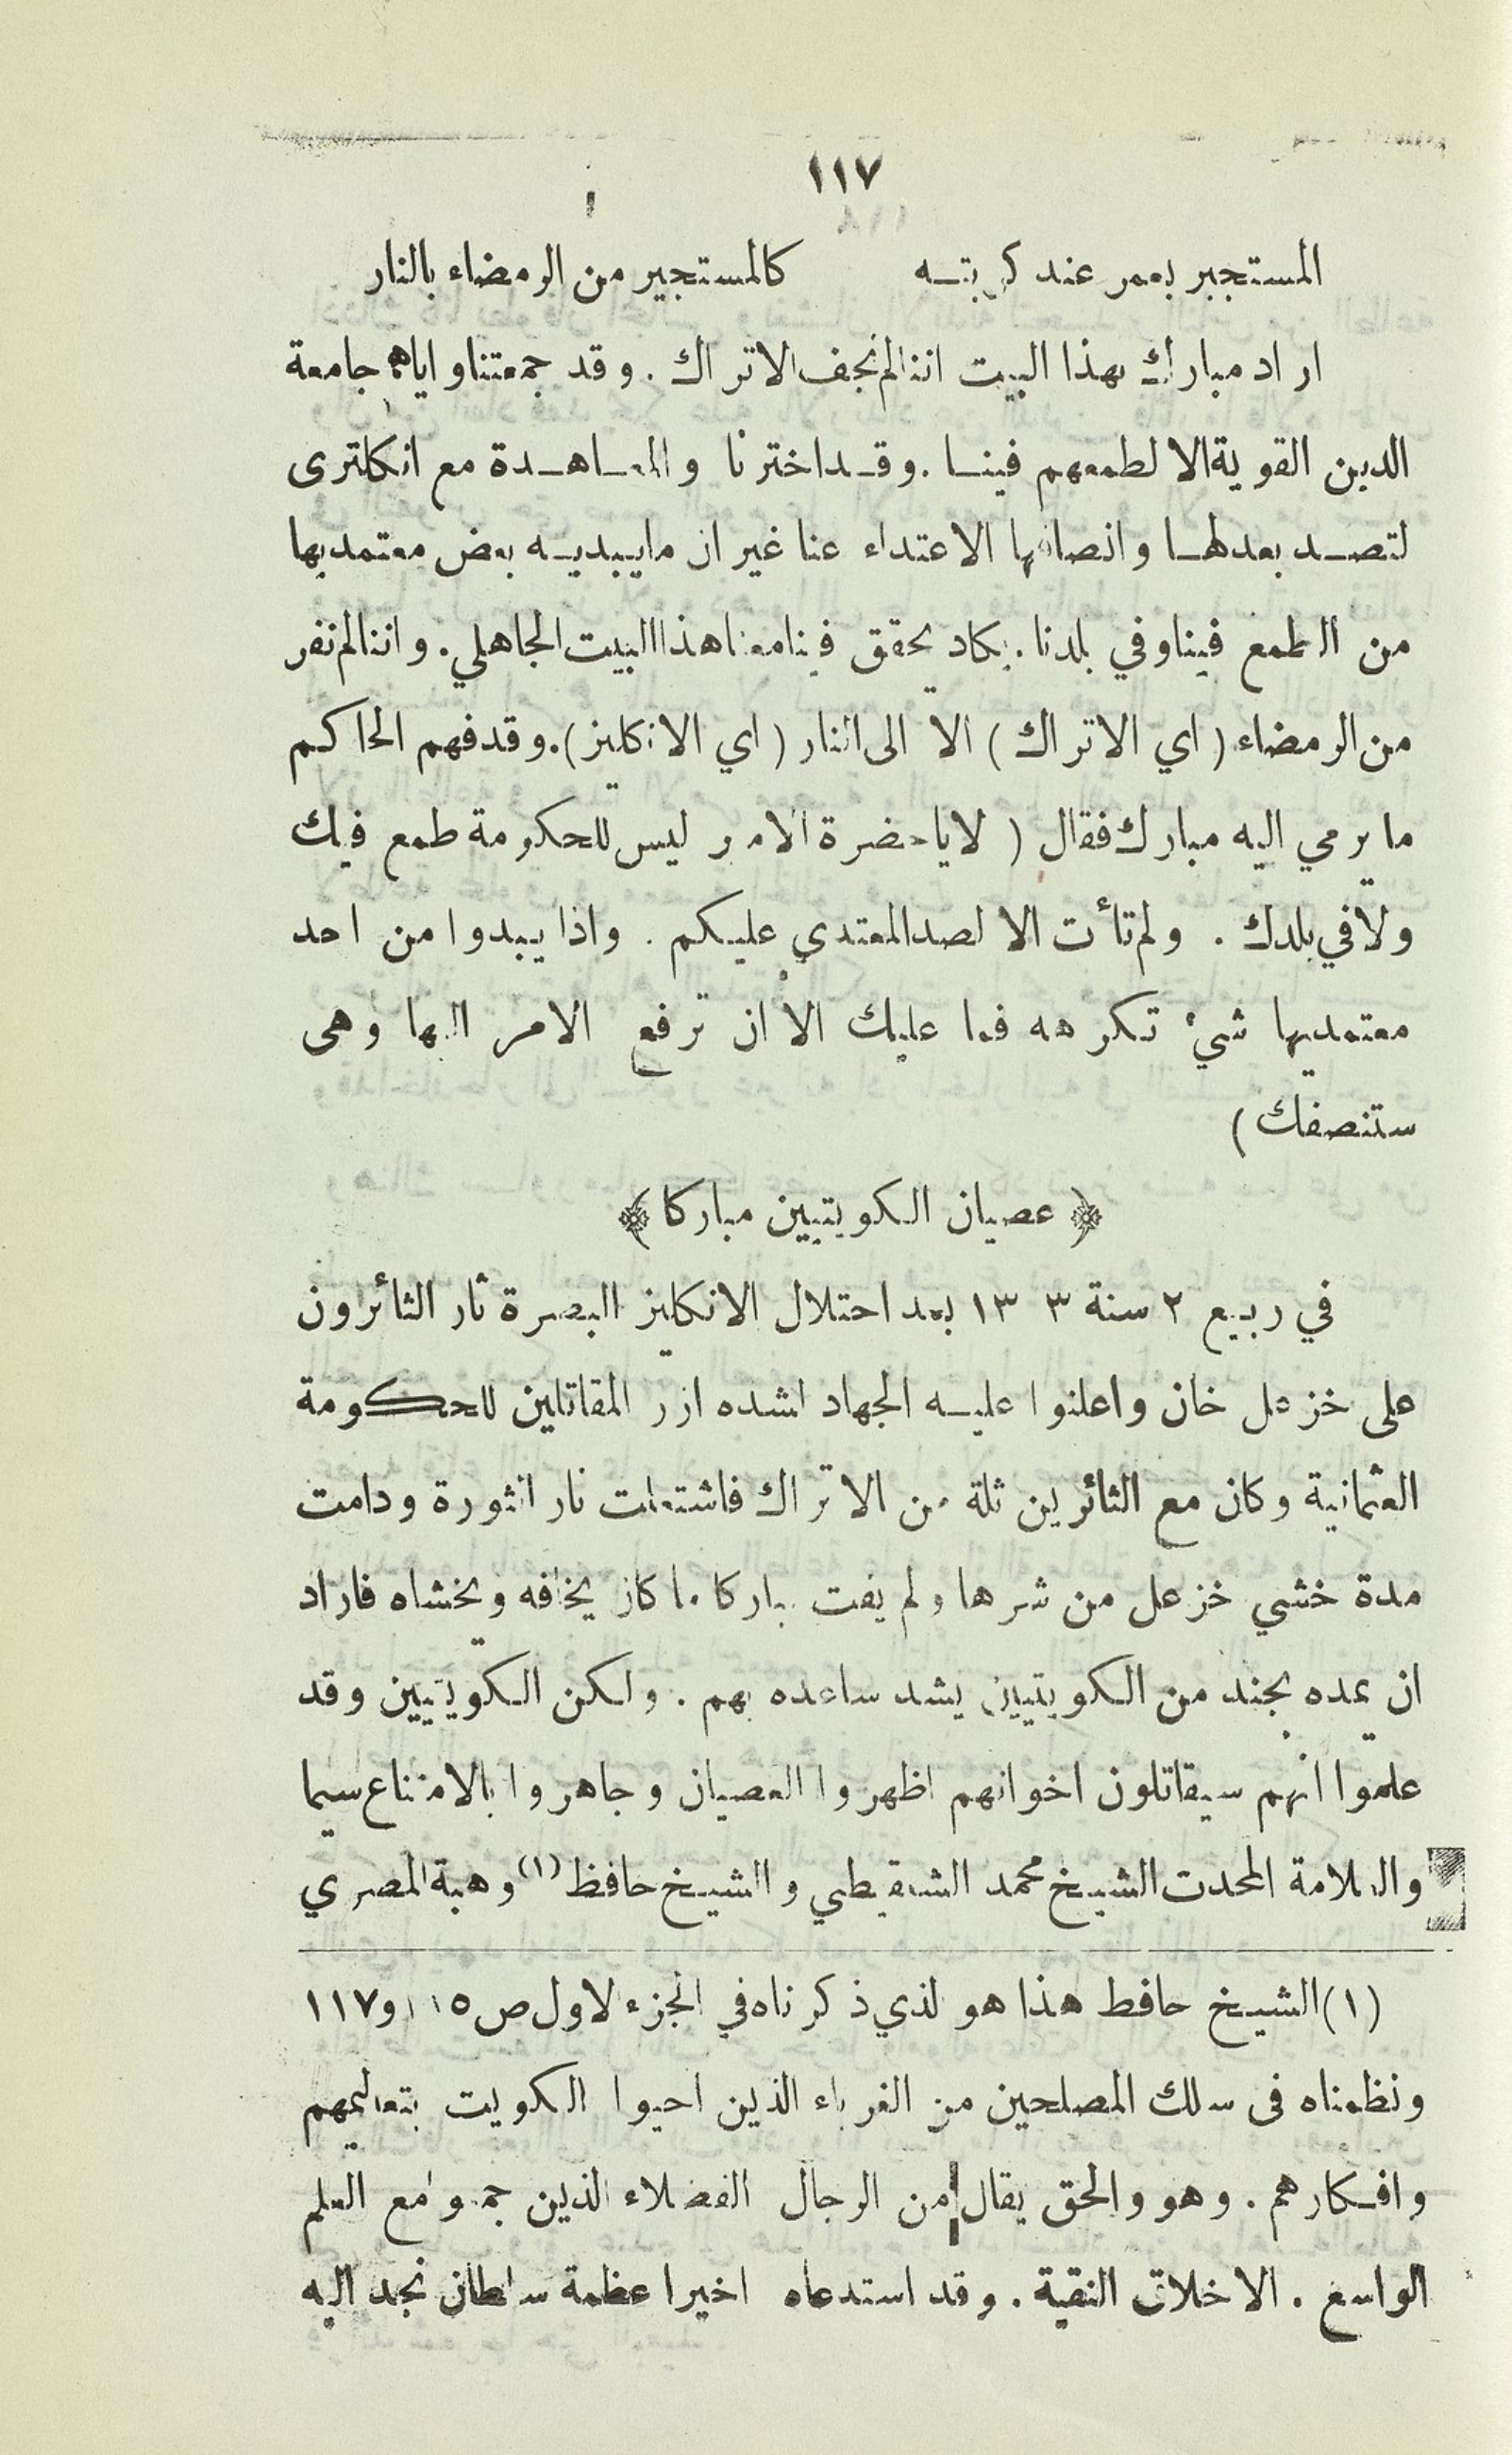 ١١٧
المستجير بعمر عند كربته كالمستجير من الرمضاء بالنار
اراد مبارك بهذا البيت اننا لم نجف الاتراك . وقد جمعتنا واياهم جامعة
الدين القوية الا لطمعهم فينا . وقد اخترنا والمعاهدة مع انكلترى
لتصد بعدلها وانصافها الاعتداء عنا غير ان مايبديه بعض معتمديها
من الطمع فينا وفي بلدنا . يكاد يحقق فينا معنا هذا البيت الجاهلي . واننا لم نفر
من الرمضاء ( اي الاتراك ) الا الى النار ( اي الانكليز ) . وقد فهم الحاكم
ما يرمي اليه مبارك فقال ( لا ياحضرة الامير ليس للحكومة طمع فيك
ولا في بلدك . ولم تأت الا لصد المعتدي عليكم . واذا يبدوا من احد
معتمديها شيء تكرهه فما عليك الا ان ترفع الامر اليها وهى
ستنصفك )
﴿ عصيان الكويتيين مباركا ﴾
في ربيع ٢ سنة ٣ ١٣٣ بعد احتلال الانكليز البصرة ثار الثائرون
على خزعل خان واعلنوا عليه الجهاد لشده ازر المقاتلين للحكومة
العثمانية وكان مع الثائرين ثلة من الاتراك فاشتعلت نار الثورة ودامت
مدة خشي خزعل من شرها ولم يفت مباركا ما كان يخافه ويخشاه فاراد
ان يمده بجند من الكويتيين يشد ساعده بهم . ولكن الكويتيين وقد
علموا انهم سيقاتلون اخوانهم اظهروا العصيان وجاهروا بالامتناع سيما
والعلامة المحدث الشيخ محمد الشنقيطي والشيخ حافظ (١) وهبة المصري
(١) الشيخ حافظ هذا هو لذي ذكرناه في الجزء لاول ص ١١٥ و ١١٧
ونظمناه فى سلك المصلحين من الغرباء الذين احيوا الكويت بتعاليمهم
وافكارهم . وهو والحق يقال من الرجال الفضلاء الذين جمعوا مع العلم
الواسع . الاخلاق النقية . وقد استدعاه اخيرا عظمة سلطان نجد اليه